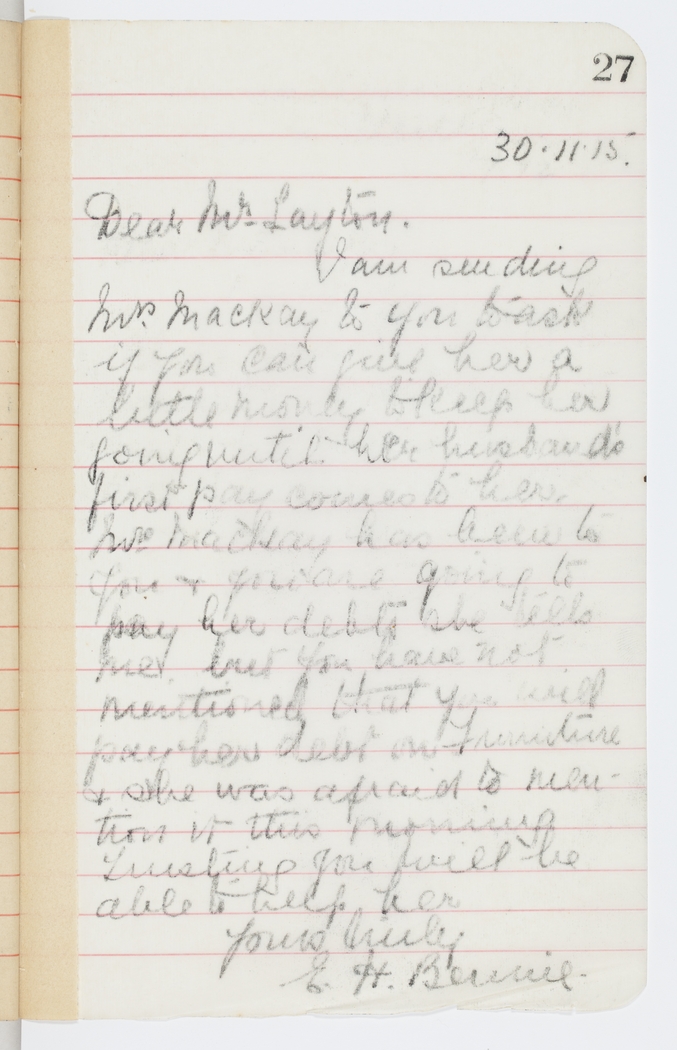 27
30.11.15.
Dear Mr. Layton.
I am sending
Mrs Mackay to you to ask
if you can give her a
little money to keep her
going until her husband's
first pay comes to her.
Mrs Mackay has been to
you & you are going to
pay her debts she tells
me. but you have not
mentioned that you will
pay her debt on Furniture
& she was afraid to men-
tion it this morning
Trusting you will be
able to help her
Yours truly
E. H. Bennie.